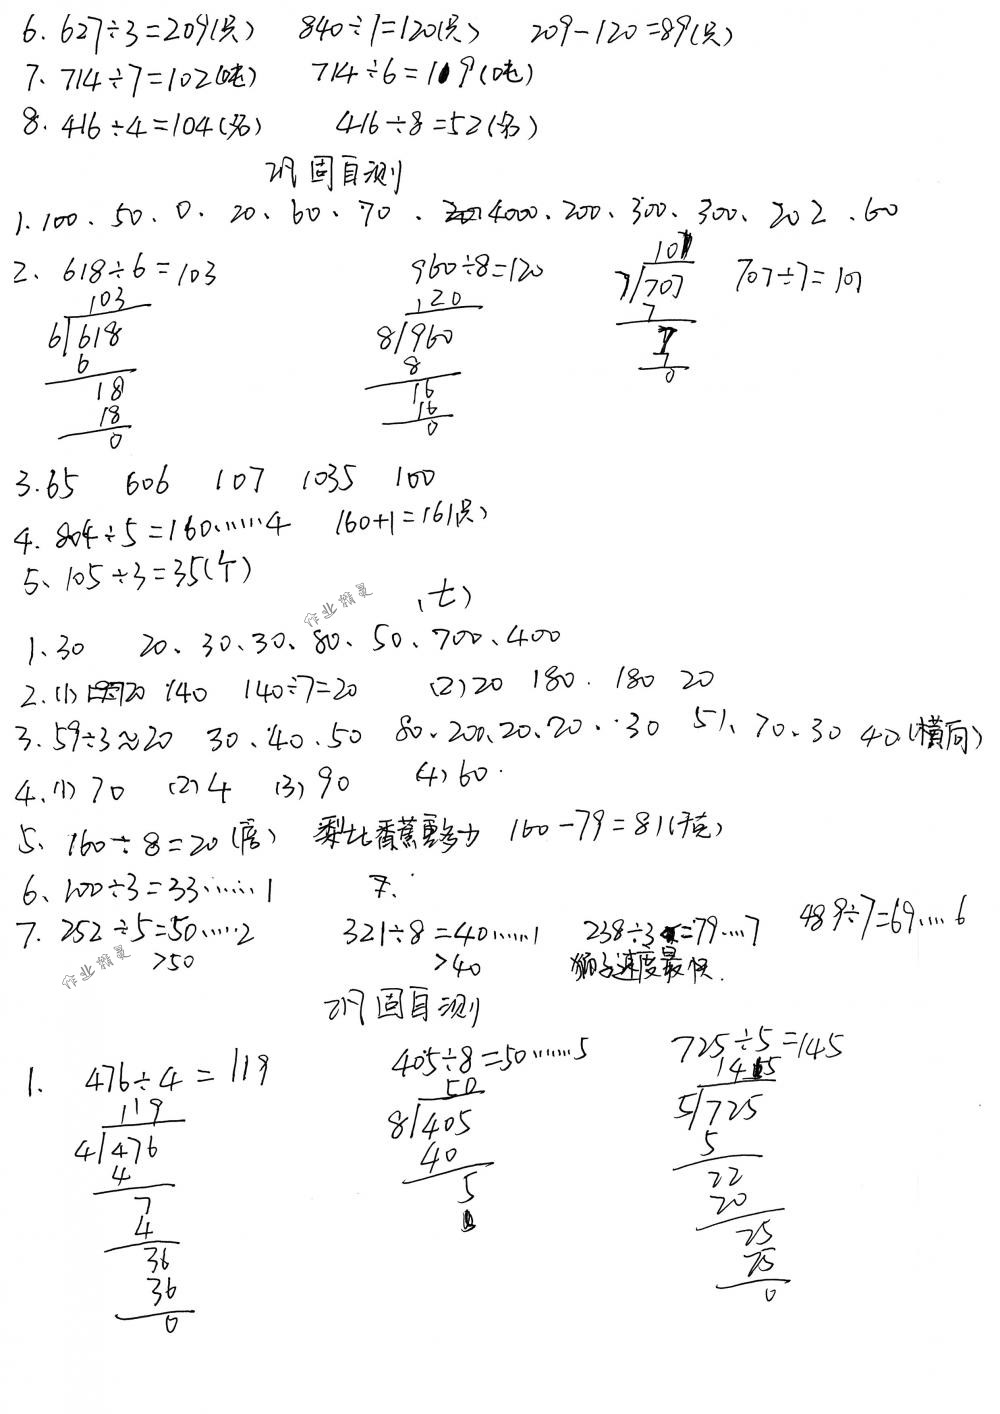 6. 627÷3=209(只) 840÷7=120(只) 209-120=89(只)
7. 714÷7=102(吨) 714÷6=119(吨)
8. 416÷4=104(名) 416÷8=52(名)
巩固自测
1. 100、50、0、20、60、70、4000、200、300、300、202、60
2. 618÷6=103 960÷8=120 707÷7=101
103 120 101
6/618 8/960 7/707
6 8 7
18 16 7
18 16 7
0 0 0
3. 65 606 107 1035 100
4. 804÷5=160……4 160+1=161(只)
5、105÷3=35(个)
(七)
作业精灵
1、30 20、30、30、80、50、700、400
2、(1) 20 140 140÷7=20 (2)20 180. 180 20
3. 59÷3≈20 30、40、50 80、200、20、20、30 51、70、30 40(横向)
4、(1)70 (2)4 (3)90 (4)60
5、160÷8=20(倍) 梨比香蕉重多少 160-79=81(千克)
6、100÷3=33……1 7.
7. 252÷5=50……2 321÷8=40……1 238÷3=79…7 489÷7=69……6
>50 >40 狮子速度最快.
作业精灵
巩固自测
1. 476÷4=119 405÷8=50……5 725÷5=145
119 50 145
4/476 8/405 5/725
4 40 5
7 5 22
4 20
36 25
36 25
0 0